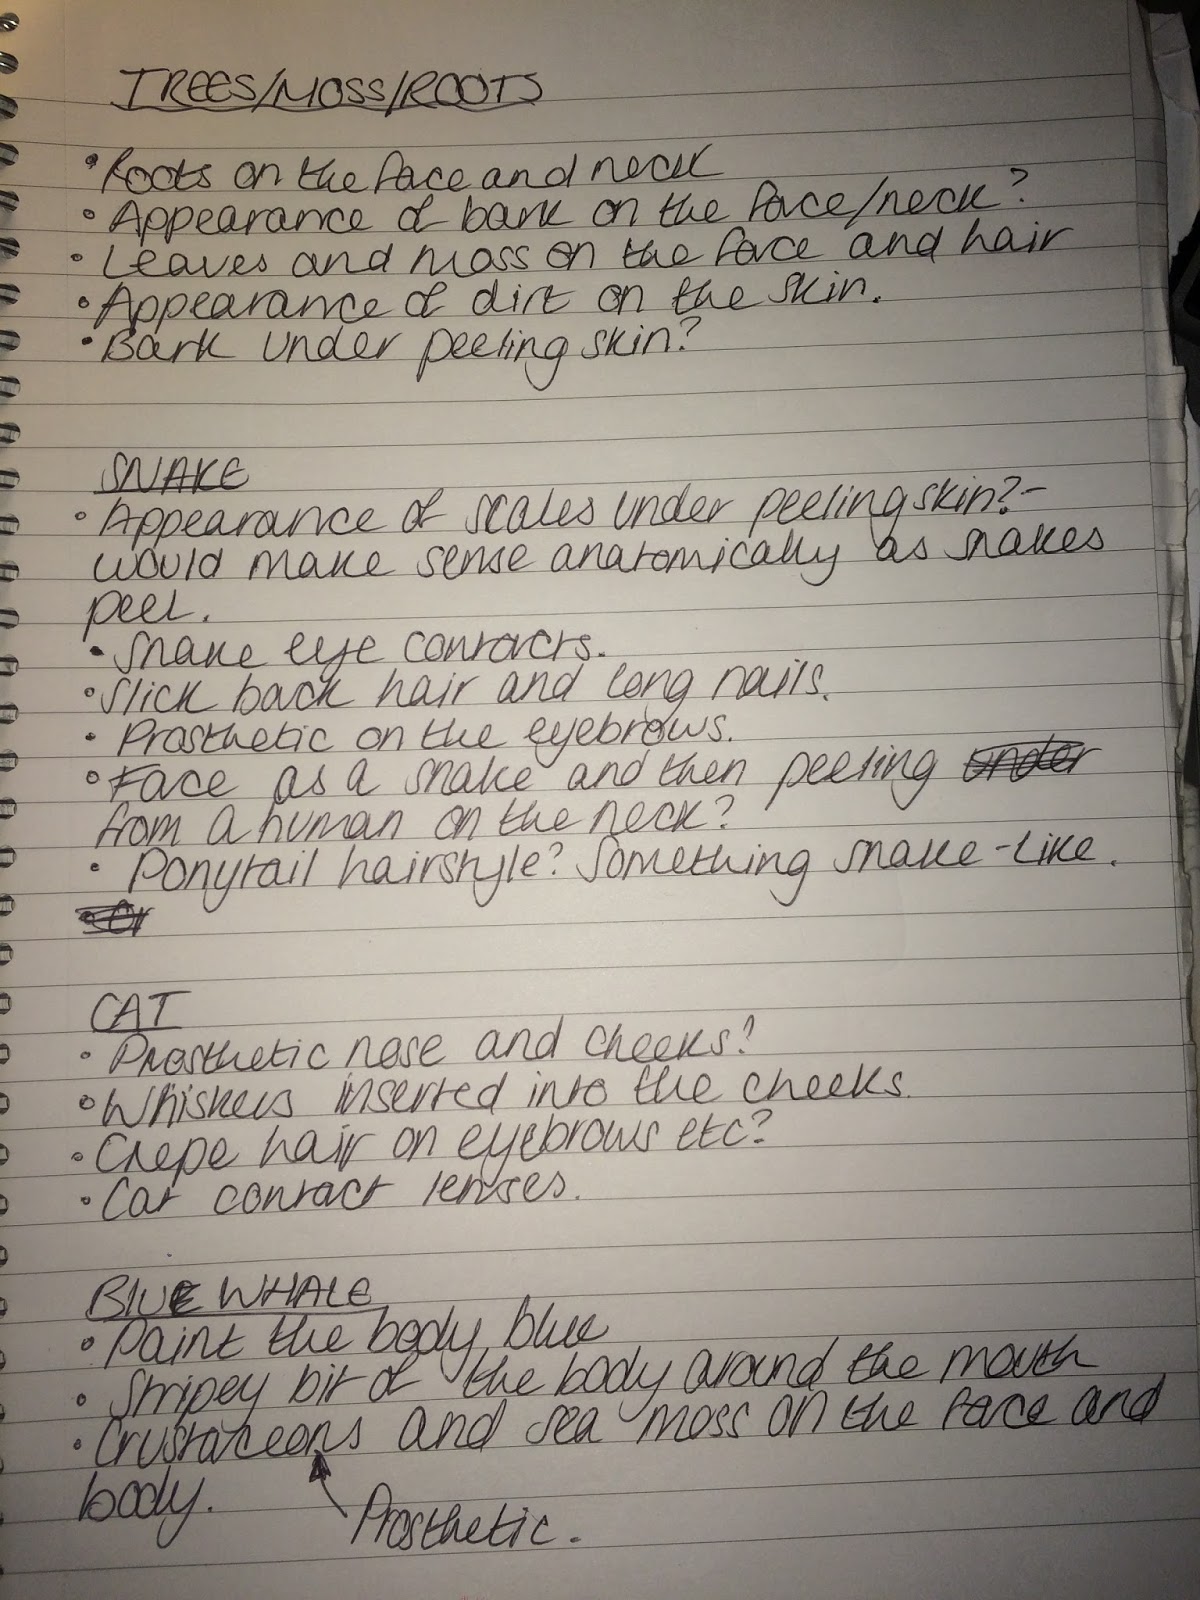 TREES/MOSS/ROOTS
• Roots on the face and neck
• Appearance of bark on the face/neck?
• Leaves and moss on the face and hair
• Appearance of dirt on the skin.
• Bark under peeling skin?
SNAKE
• Appearance of scales under peeling skin? -
would make sense anatomically as snakes
peel.
• Snake eye contacts.
• Slick back hair and long nails.
• Prosthetic on the eyebrows.
• Face as a snake and then peeling under
from a human on the neck?
• Ponytail hairstyle? Something snake-like.
CAT
• Prosthetic nose and cheeks?
• Whiskers inserted into the cheeks.
• Crepe hair on eyebrows etc?
• Cat contact lenses.
BLUE WHALE
• Paint the body blue
• Stripey bit of the body around the mouth
• Crustaceons and sea moss on the face and
body.
Prosthetic.